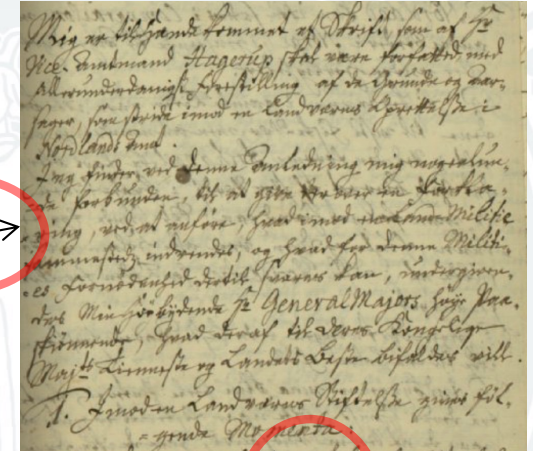 Mig er tilhænde kommet et Skrift, som af Hr
Vice-Amtmand Hagerup skal være forfatted, med
Allerunderdanigst Forestilling af de Grunde og Aar-
sager, som strider imod en Landværns Oprettelse i
Nordlands Amt.
Jeg finder ved denne anledning mig nogenlun-
de forbunden, til at give herover en Forkla-
ring, ved at anføre, hvad imod Militie
sammesteds indvendes, og hvad for denne Militi-
es Fornødenhed dertil svares kan, undergiven-
des Min Høybydende Hr General Majors høye Paa-
skiønnende, hvad deraf til Deres Kongelige
Majts Tienneste og Landets Beste bifaldes vill.
1. Imod en Landværns Stiftelse gives föl-
gende Momenta: